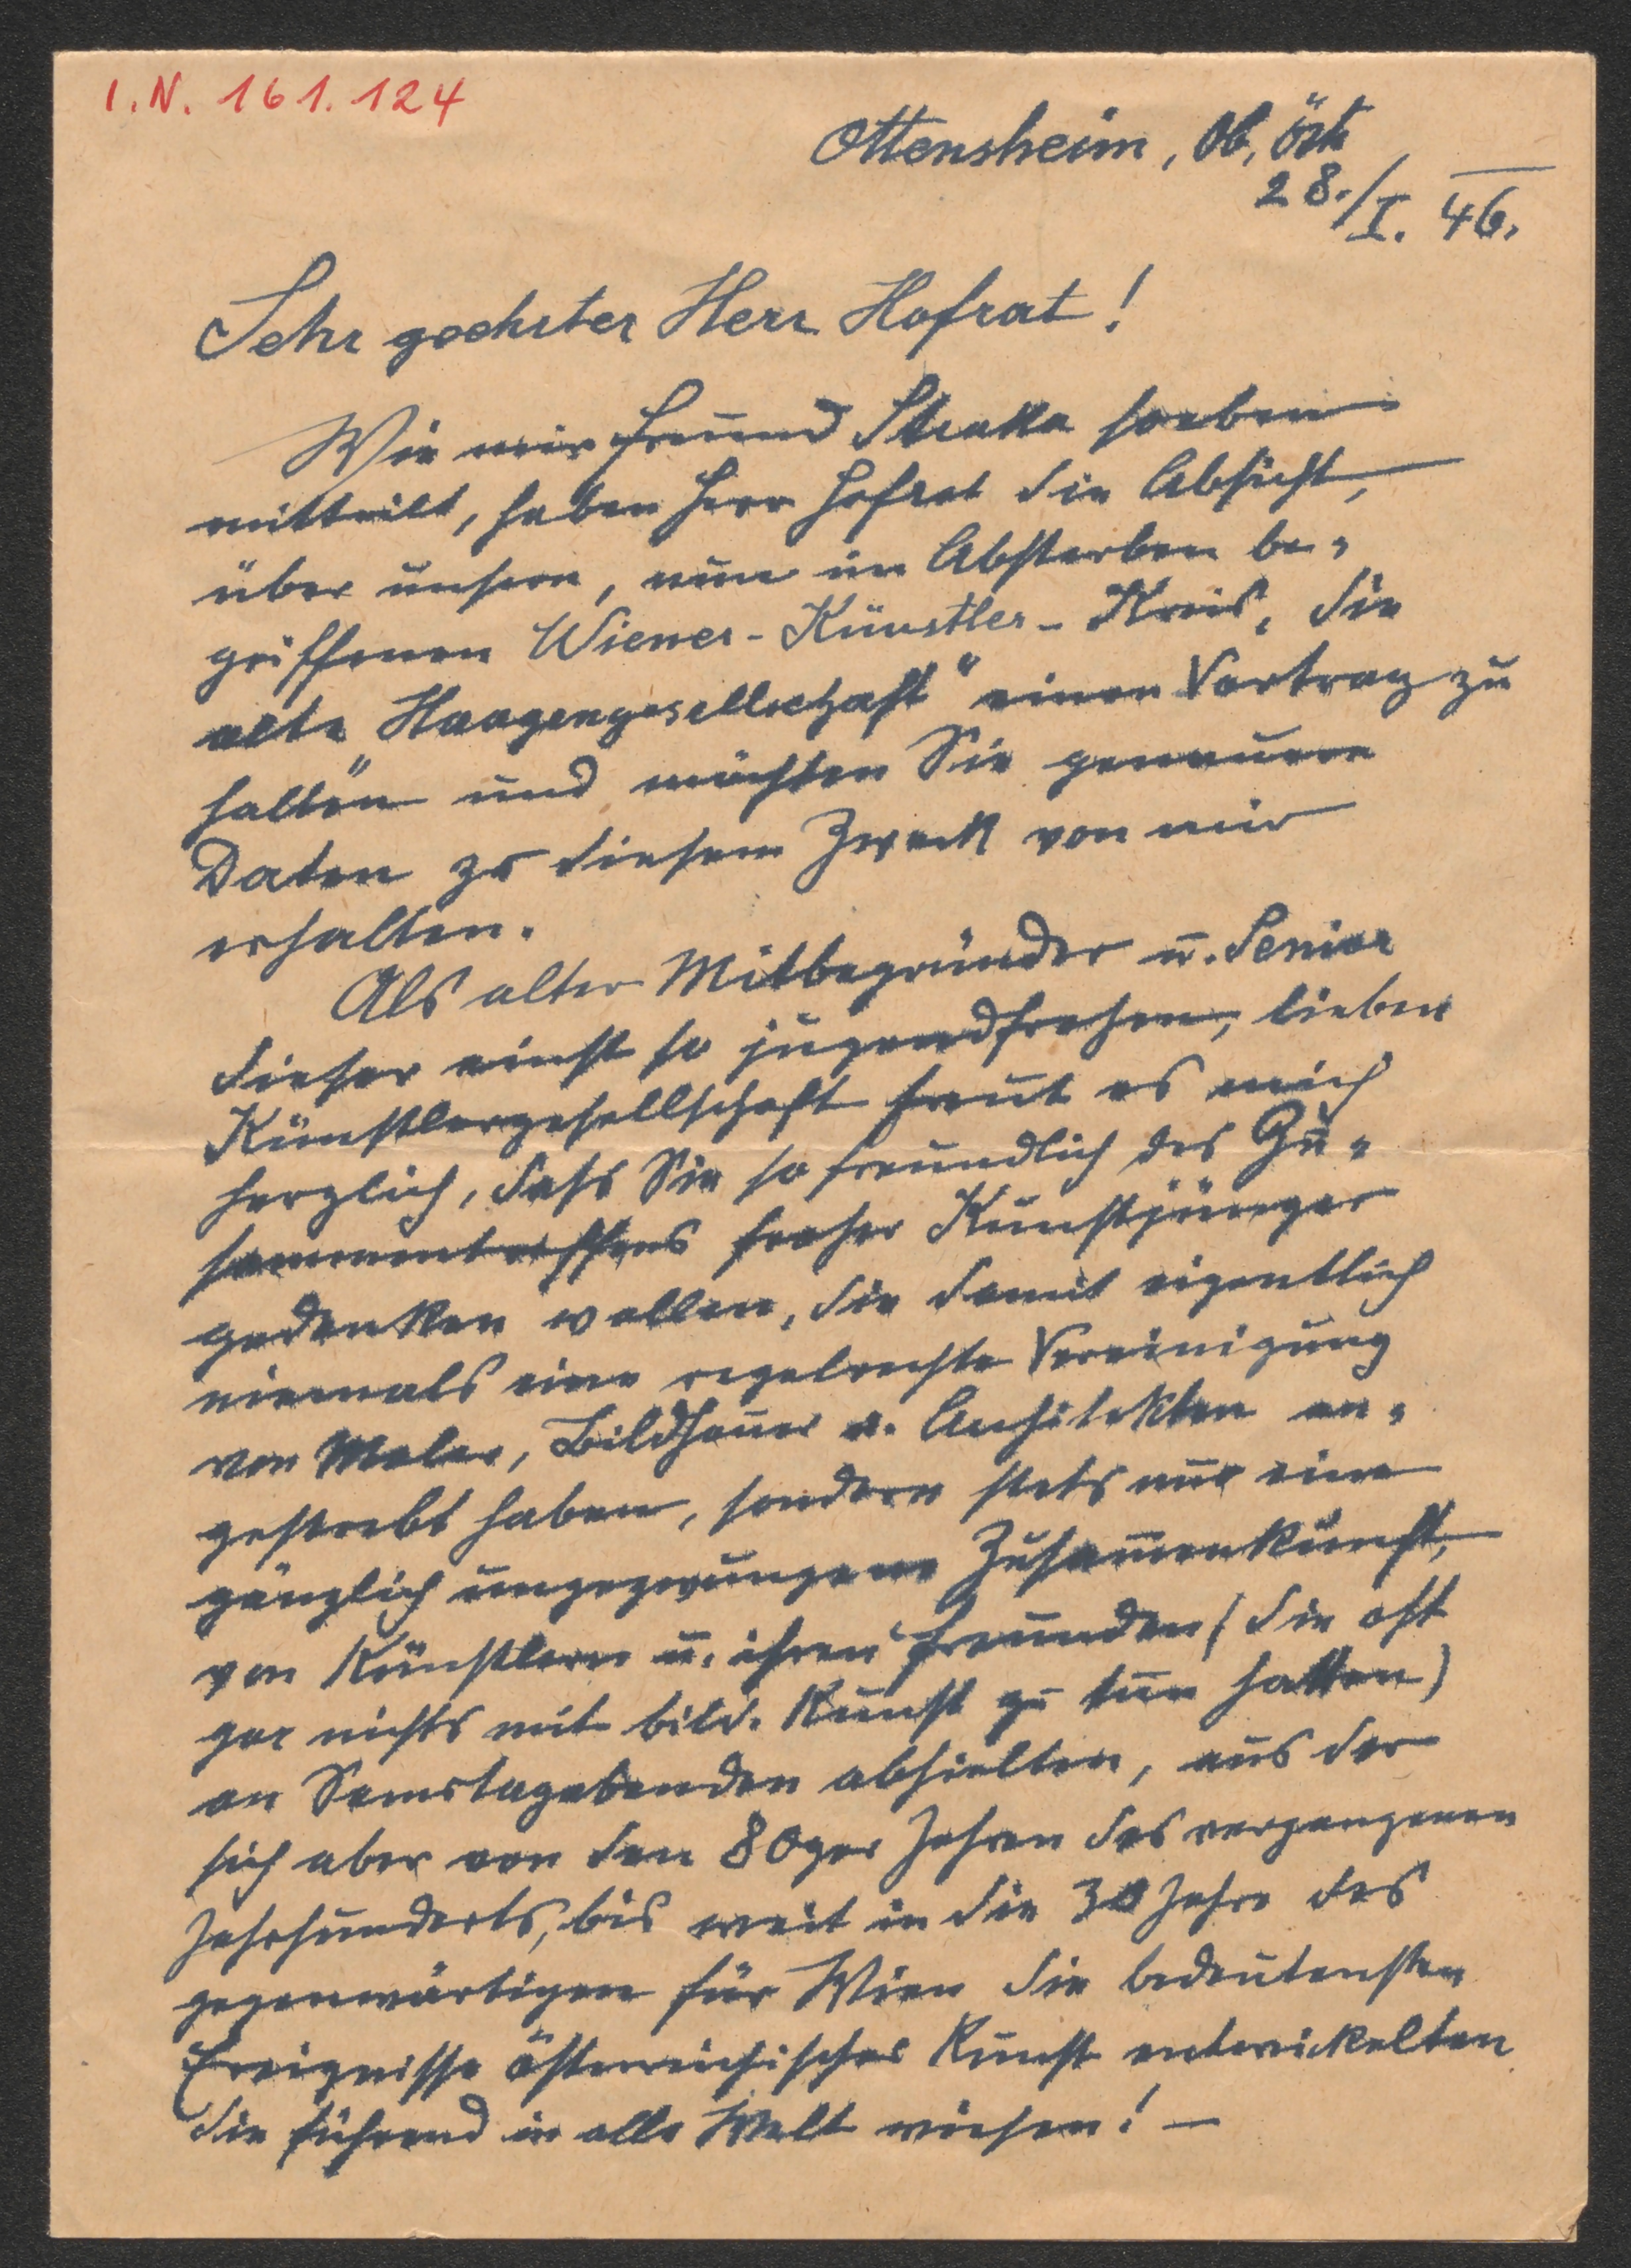 I.N. 161.124
Ottensheim, Ob. Öst.
28./I. 46.
Sehr geehrter Herr Hofrat!
Wie mir Freund Straka soeben
mitteilt, haben Herr Hofrat die Absicht,
über unsern, nun im Absterben be-
griffenen Wiener-Künstler-Kreis, die
alte „Haagengesellschaft" einen Vortrag zu
halten und möchten Sie genauere
Daten zu diesem Zweck von mir
erhalten.
Als alter Mitbegründer u. Senior
dieser einst so jugendfrohen, lieben
Künstlergesellschaft freut es mich
herzlich, dass Sie so freundlich des Zu-
sammentreffens froher Kunstjünger
gedenken wollen, die damit eigentlich
niemals eine regelrechte Vereinigung
von Maler, Bildhauer u. Architekten an-
gestrebt haben, sondern stets nur eine
gänzlich ungezwungene Zusammenkunft,
von Künstlern u. ihren Freunden (die oft
gar nichts mit bild. Kunst zu tun hatten)
an Samstagabenden abhielten, aus der
sich aber von den 80ger Jahren des vergangenen
Jahrhunderts, bis weit in die 30 Jahre des
gegenwärtigen für Wien die bedeutensten
Ereignisse österreichischer Kunst entwickelten
die führend in alle Welt wiesen! —